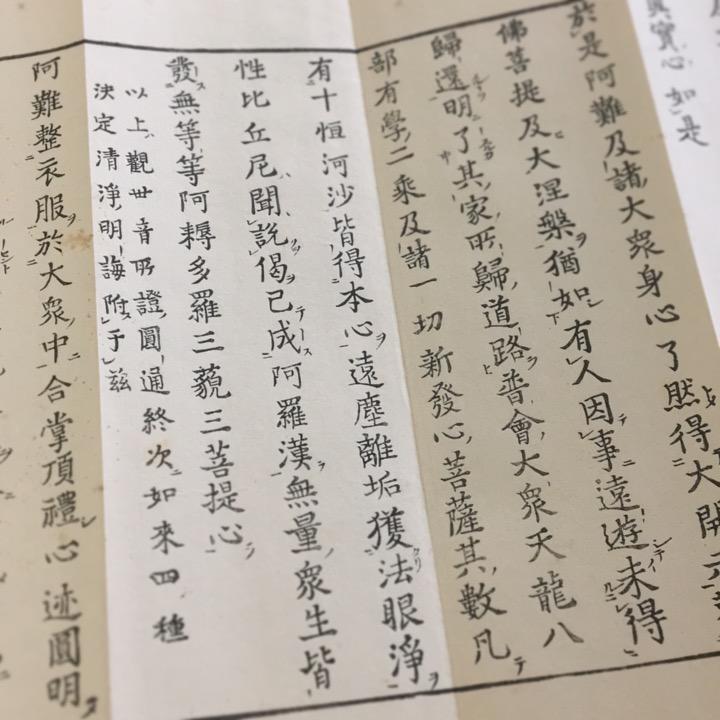 真實心如是
於是阿難及諸大衆身心了然得大開
佛菩提及大涅槃猶如有人因事遠遊未得
歸還明了其家所歸道路普會大衆天龍八
部有學二乘及諸一切新發心菩薩其數凡
有十恒河沙皆得本心遠塵離垢獲法眼淨
性比丘尼聞說偈已成阿羅漢無量衆生皆
發無等等阿耨多羅三藐三菩提心
以上觀世音所證圓通終次如來四種
決定清淨明誨附于茲
阿難整衣服於大衆中合掌頂禮心迹圓明